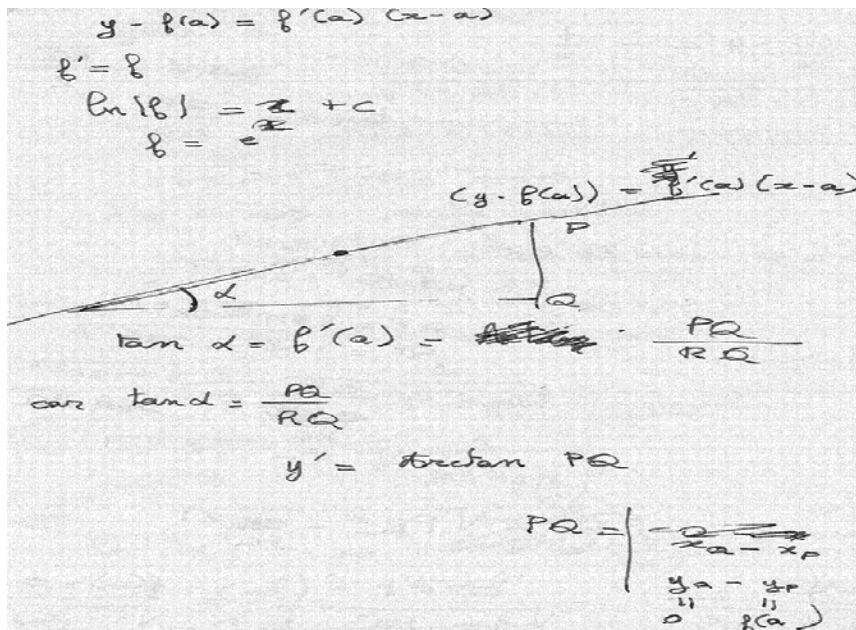 y - f(a) = f'(a) (x-a)
f' = f
ln |f| = x + c
f = e^x
(y - f(a)) = f'(a) (x-a)
P
α
Q
tan α = f'(a) = PQ / RQ
car tan α = PQ / RQ
y' = Arctan PQ
PQ = | x_Q - x_P
y_Q - y_P
" "
0 f(a)